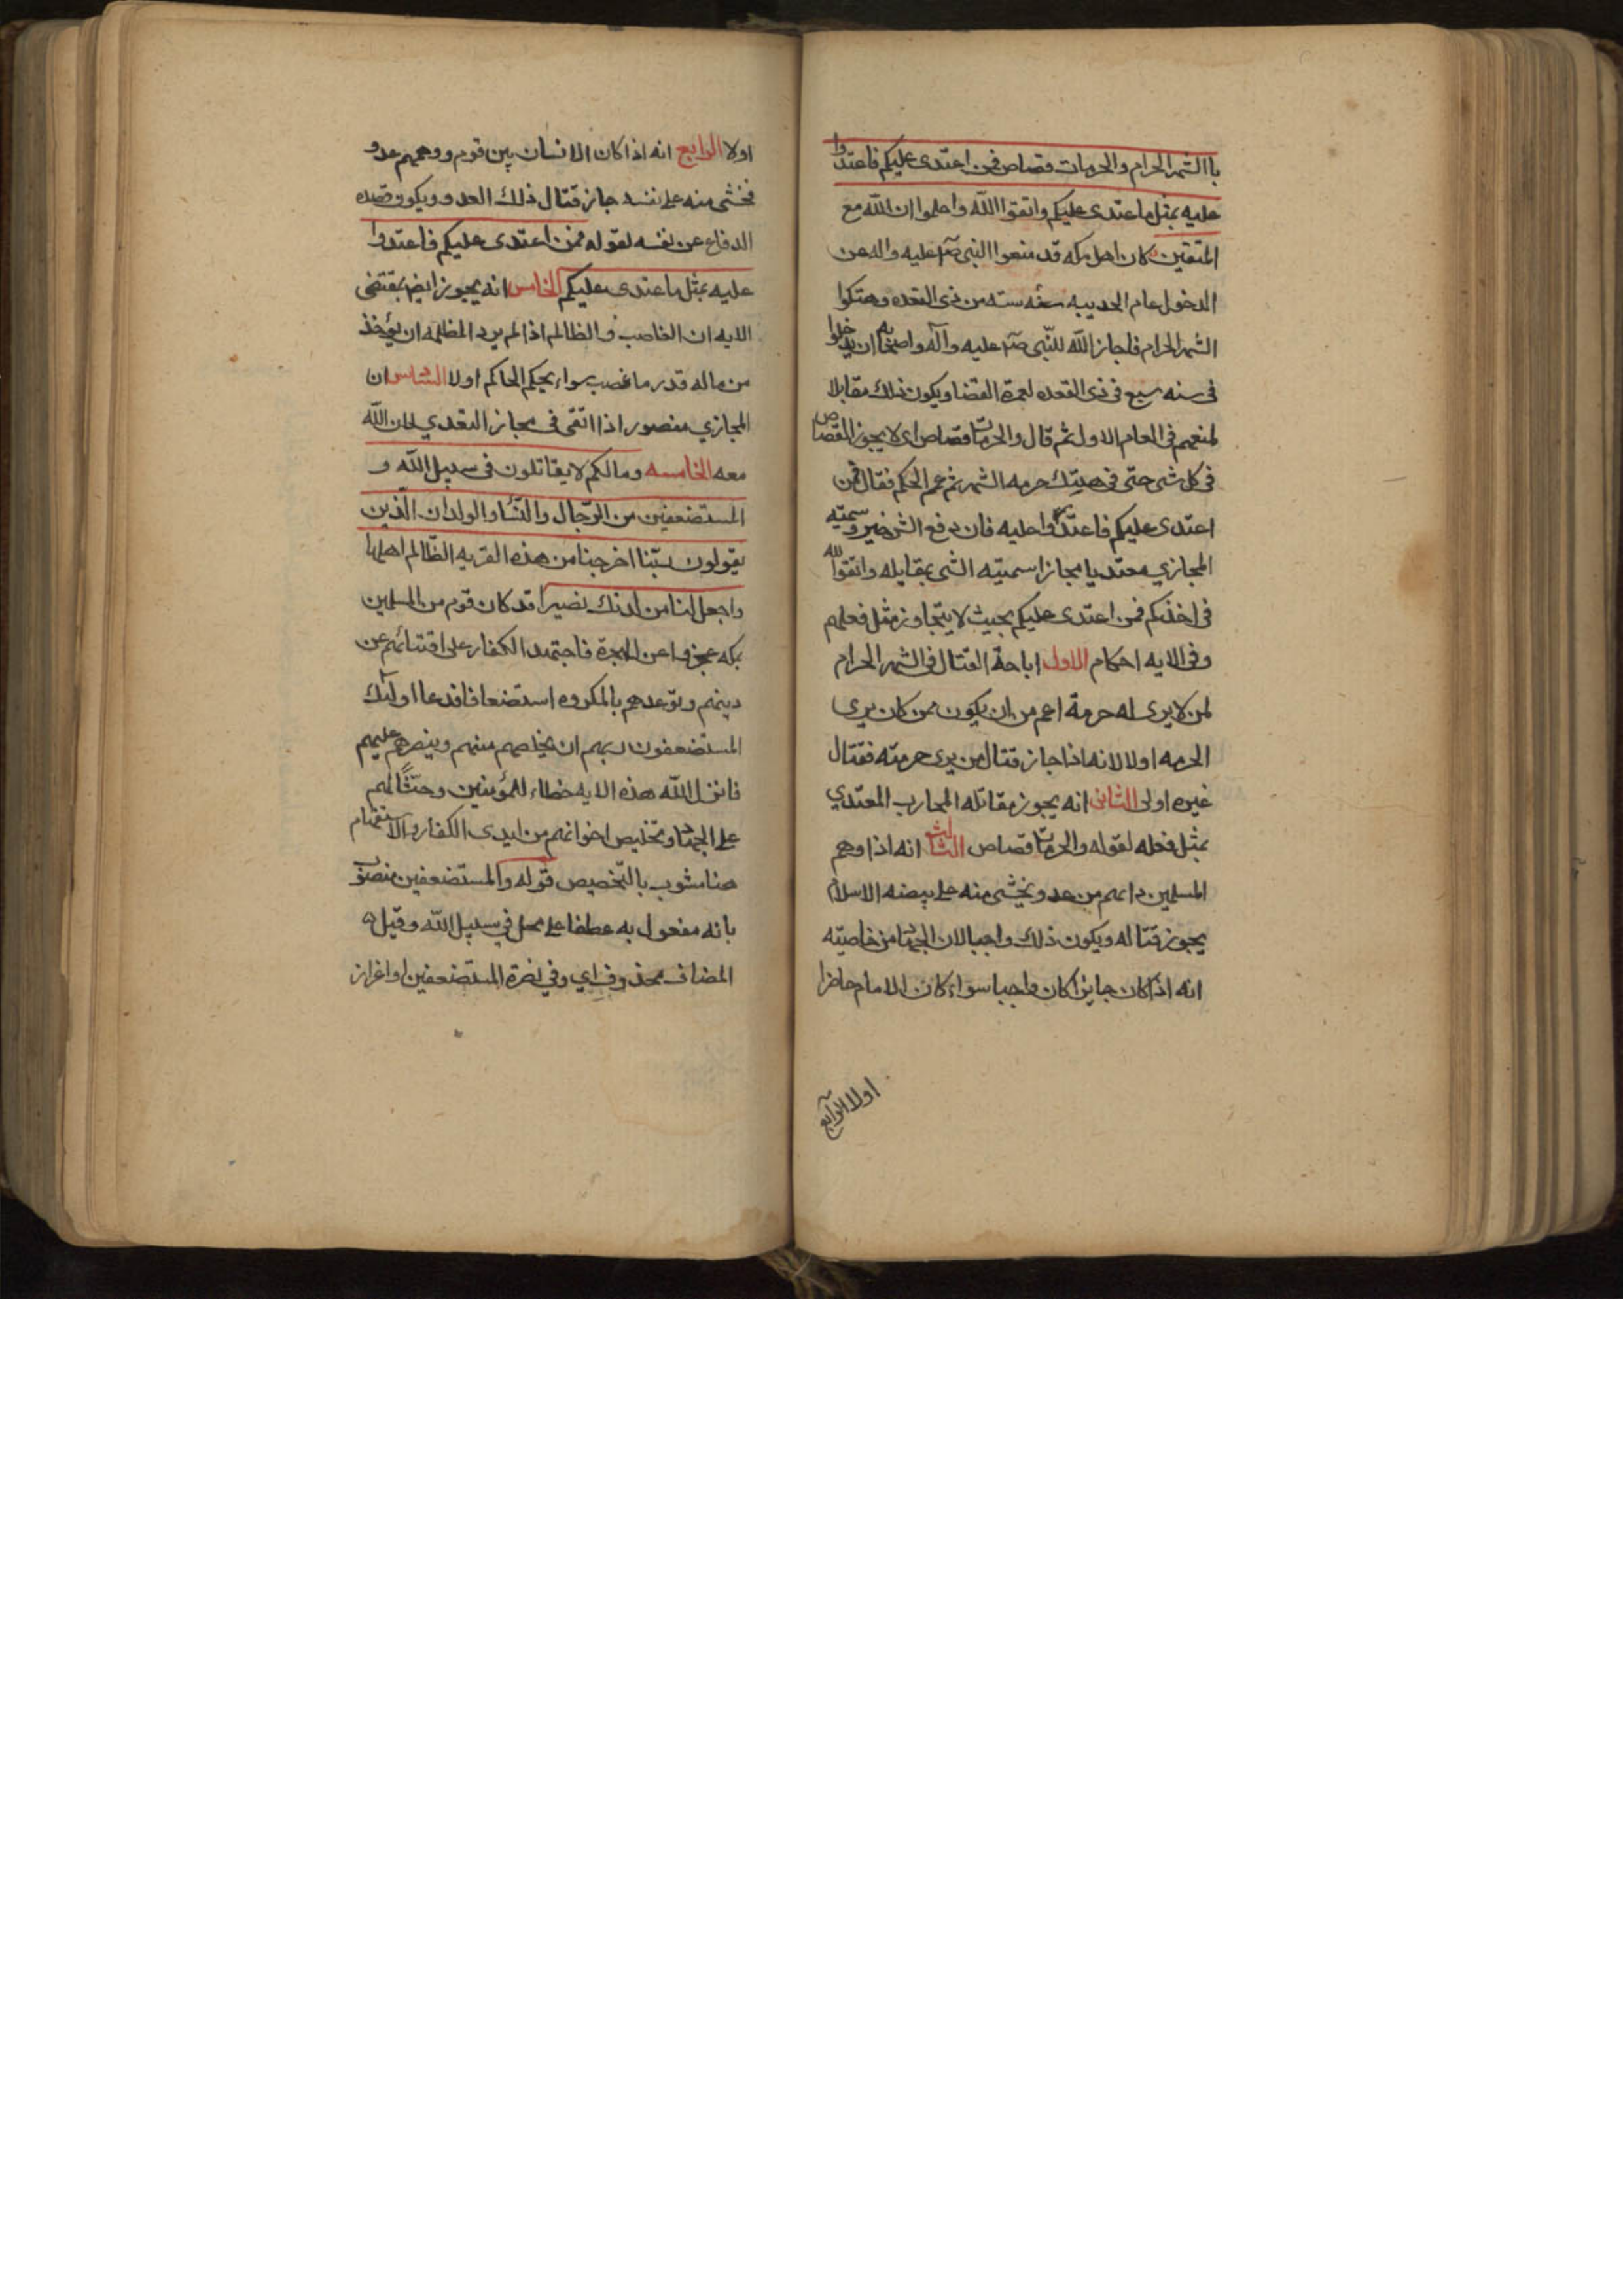 باالشهر الحرام والحرمات قصاص فمن اعتدى عليكم فاعتدوا
عليه بمثل ما عتدى عليكم واتقوا الله واعلموا ان الله مع
المتقين كان اهل مكه قد منعوا النبى صم عليه واله عن
الدخول عام الحديبيه سنه سته من ذى القعده وهتكوا
الشهر الحرام فاجاز الله للنّبى صم عليه وآله واصحابه ان يدخلوا
فى سنه سبع فى ذى القعده لعمرة القضا ويكون ذلك مقابلا
لمنعهم فى العام الاول ثم قال والحرمات قصاص اى لا يجوز القصاص
فى كل شى حتّى فى هتك حرمه الشهر ثم عمم الحكم فقال فمن
اعتدى عليكم فاعتدوا عليه فان دفع الشر خير وسميّه
المجازي معتديا مجازا سميته الشى بمقابله واتقوا الله
فى اخذكم فمن اعتدى عليكم بحيث لا يتجاوز مثل فعلهم
وفى الايه احكام الاول اباحة القتال فى الشهر الحرام
لمن لا يرى له حرمة اعم من ان يكون ممن كان يرى
الحرمه اولا لانه اذا جاز قتال من يرى حرمته فقتال
غيره اولى الثانى انه يجوز مقاتله المحارب المعتدي
بمثل فعله لقوله والحرمات قصاص الثالث انه اذا وهم
المسلمين داهم من عدو يخشى منه على بيضه الاسلام
يجوز قتاله ويكون ذلك واجبا لان الجهاد من خاصيته
انه اذا كان جايزا كان واجبا سواء كان الامام حاضرا
اولا الرابع
اولا الرابع انه اذا كان الانسان بين قوم ووهمهم عدو
فخشى منه على نفسه جاز قتال ذلك العدو ويكون قصده
الدفاع عن نفسه لقوله فمن اعتدى عليكم فاعتدوا
عليه بمثل ما عتدى عليكم الخامس انه يجوز ايضا بمقتضى
الايه ان الغاصب والظالم اذا لم يرد المظلمه ان يؤخذ
من ماله قدر ما غصب سواء بحكم الحاكم اولا السادس ان
المجازي منصور اذا اتقى فى مجاز التعدي لان الله
معه الخامسه ومالكم لا يقاتلون فى سبيل الله و
المستضعفين من الرّجال والنّساء والولدان الّذين
يقولون ربّنا اخرجنا من هذه القريه الظّالم اهلها
واجعل لنا من لدنك نصيرا قد كان قوم من المسلمين
بمكه عجزوا عن الهجرة فاجتهد الكفار على افتتائهم عن
دينهم وتوعدهم بالمكروه استضعافا فدعا اولئك
المستضعفون ربهم ان يخلصهم منهم وينصرهم عليهم
فانزل الله هذه الايه خطاء للمؤمنين وحثّاً لهم
على الجهاد وتخليص اخوانهم من ايدى الكفار والاستفهام
هنا مشوب بالتّخصيص قوله والمستضعفين منصوب
بانه مفعول به عطفا على محل فى سبيل الله وقيل
المضاف محذوف اي وفي نصرة المستضعفين او اغراز